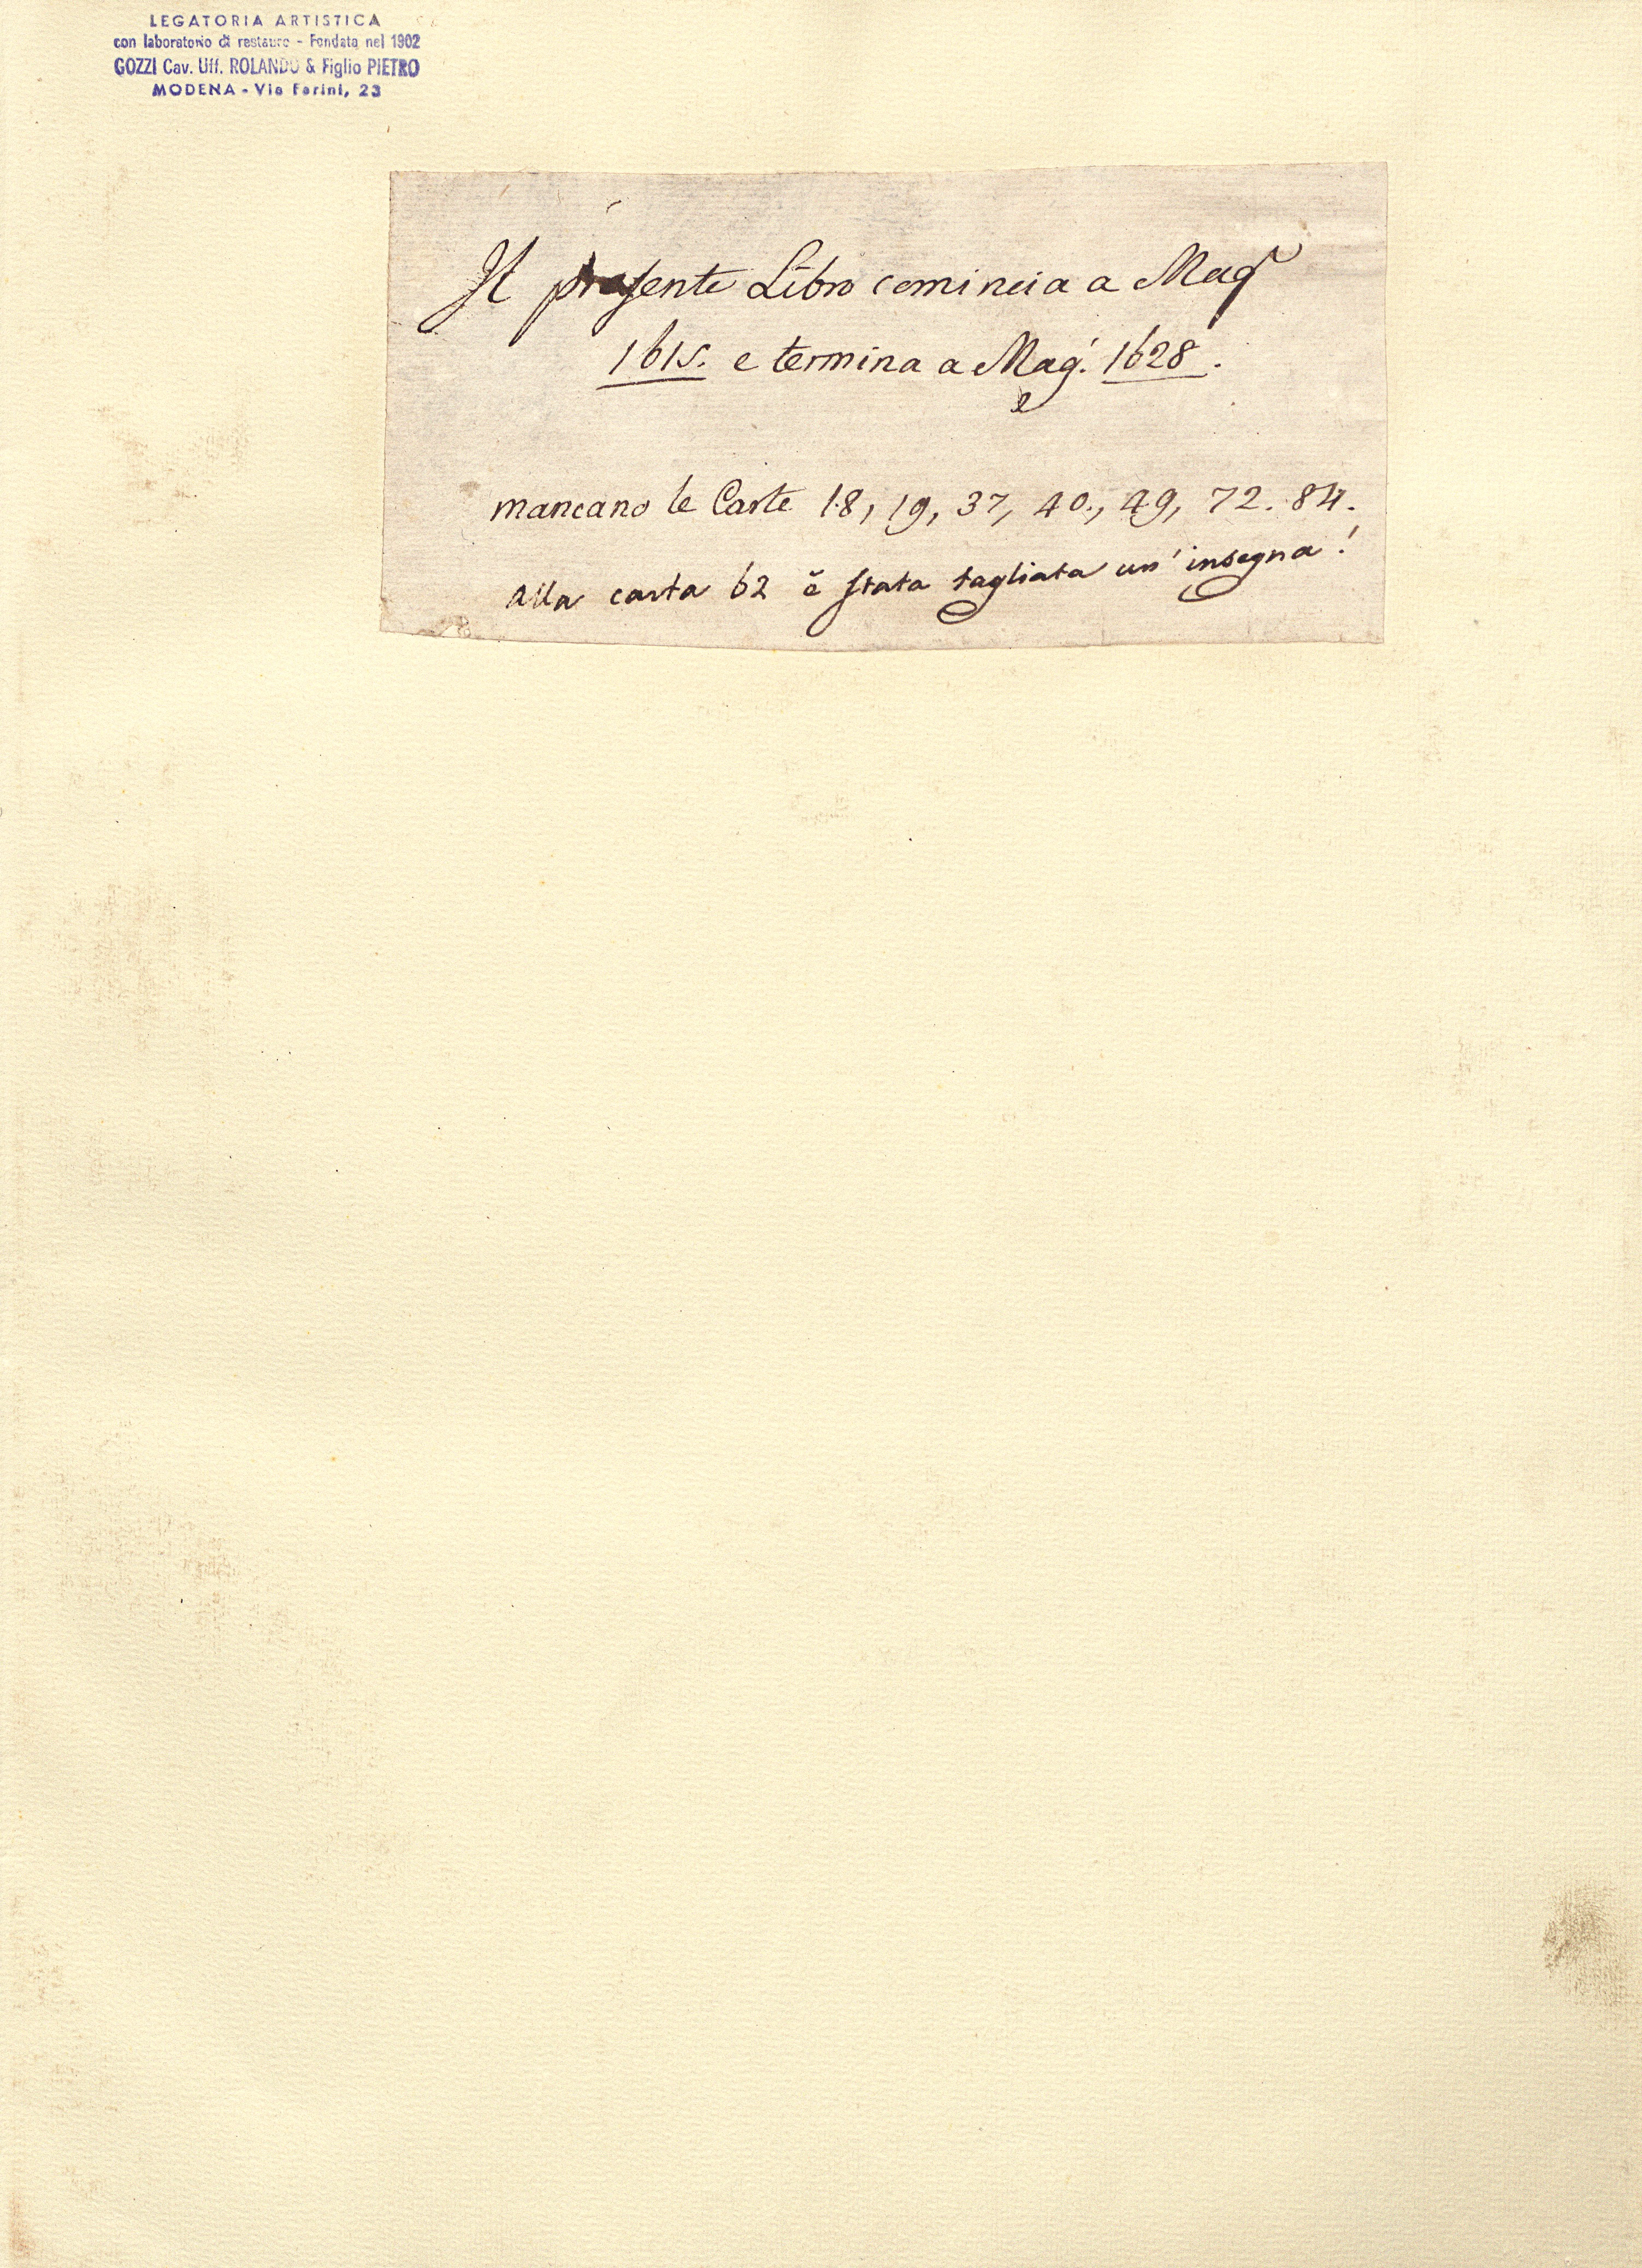 LEGATORIA ARTISTICA
con laboratorio di restauro - Fondata nel 1902
GOZZI Cav. Uff. ROLANDO & Figlio PIETRO
MODENA - Via Farini, 23
Il presente Libro comincia a Mag°
1615. e termina a Mag. 1628.
mancano le Carte 18, 19, 37, 40., 49, 72. 84.
alla carta 62 è stata tagliata un' insegna!